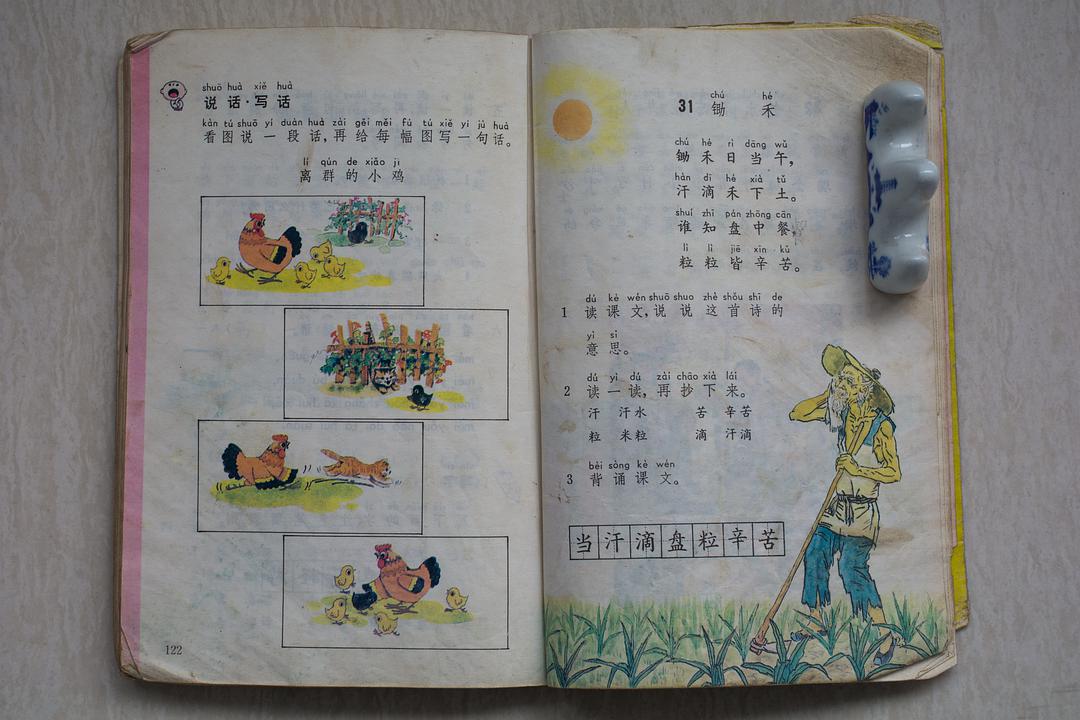 shuō huà xiě huà
说话·写话
kàn tú shuō yí duàn huà zài gěi měi fú tú xiě yí jù huà
看图说一段话，再给每幅图写一句话。
lí qún de xiǎo jī
离群的小鸡
122
chú hé
31 锄 禾
chú hé rì dāng wǔ
锄禾日当午，
hàn dī hé xià tǔ
汗滴禾下土。
shuí zhī pán zhōng cān
谁知盘中餐，
lì lì jiē xīn kǔ
粒粒皆辛苦。
dú kè wén shuō shuo zhè shǒu shī de
1 读课文，说说这首诗的
yì si
意思。
dú yì dú zài chāo xià lái
2 读一读，再抄下来。
汗 汗水 苦 辛苦
粒 米粒 滴 汗滴
bèi sòng kè wén
3 背诵课文。
当汗滴盘粒辛苦